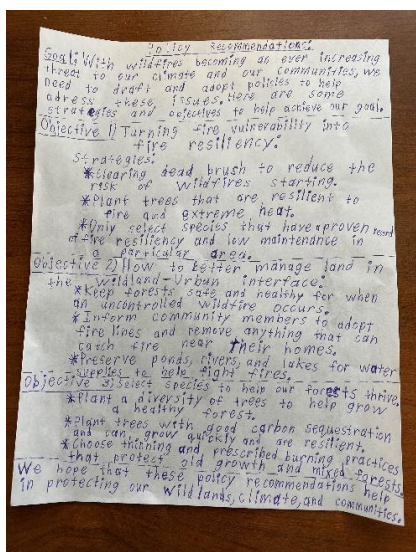 Policy Recommendations:
Goal: With wildfires becoming an ever increasing
threat to our climate and our communities, we
need to draft and adopt policies to help
adress these issues. Here are some
strategies and objectives to help achieve our goal.
Objective 1) Turning fire vulnerability into
fire resiliency:
Strategies:
*Clearing dead brush to reduce the
risk of wildfires starting.
*Plant trees that are resilient to
fire and extreme heat.
*Only select species that have a proven record
of fire resiliency and low maintenance in
a particular area.
Objective 2) How to better manage land in
the Wildland-Urban interface:
*Keep forests safe and healthy for when
an uncontrolled wildfire occurs.
*Inform community members to adopt
fire lines and remove anything that can
catch fire near their homes.
*Preserve ponds, rivers, and lakes for water
supplies to help fight fires.
Objective 3) Select species to help our forests thrive.
*Plant a diversity of trees to help grow
a healthy forest.
*Plant trees with good carbon sequestration
and can grow quickly and are resilient.
*Choose thinning and prescribed burning practices
that protect old growth and mixed forests.
We hope that these policy recommendations help
in protecting our wildlands, climate, and communities.